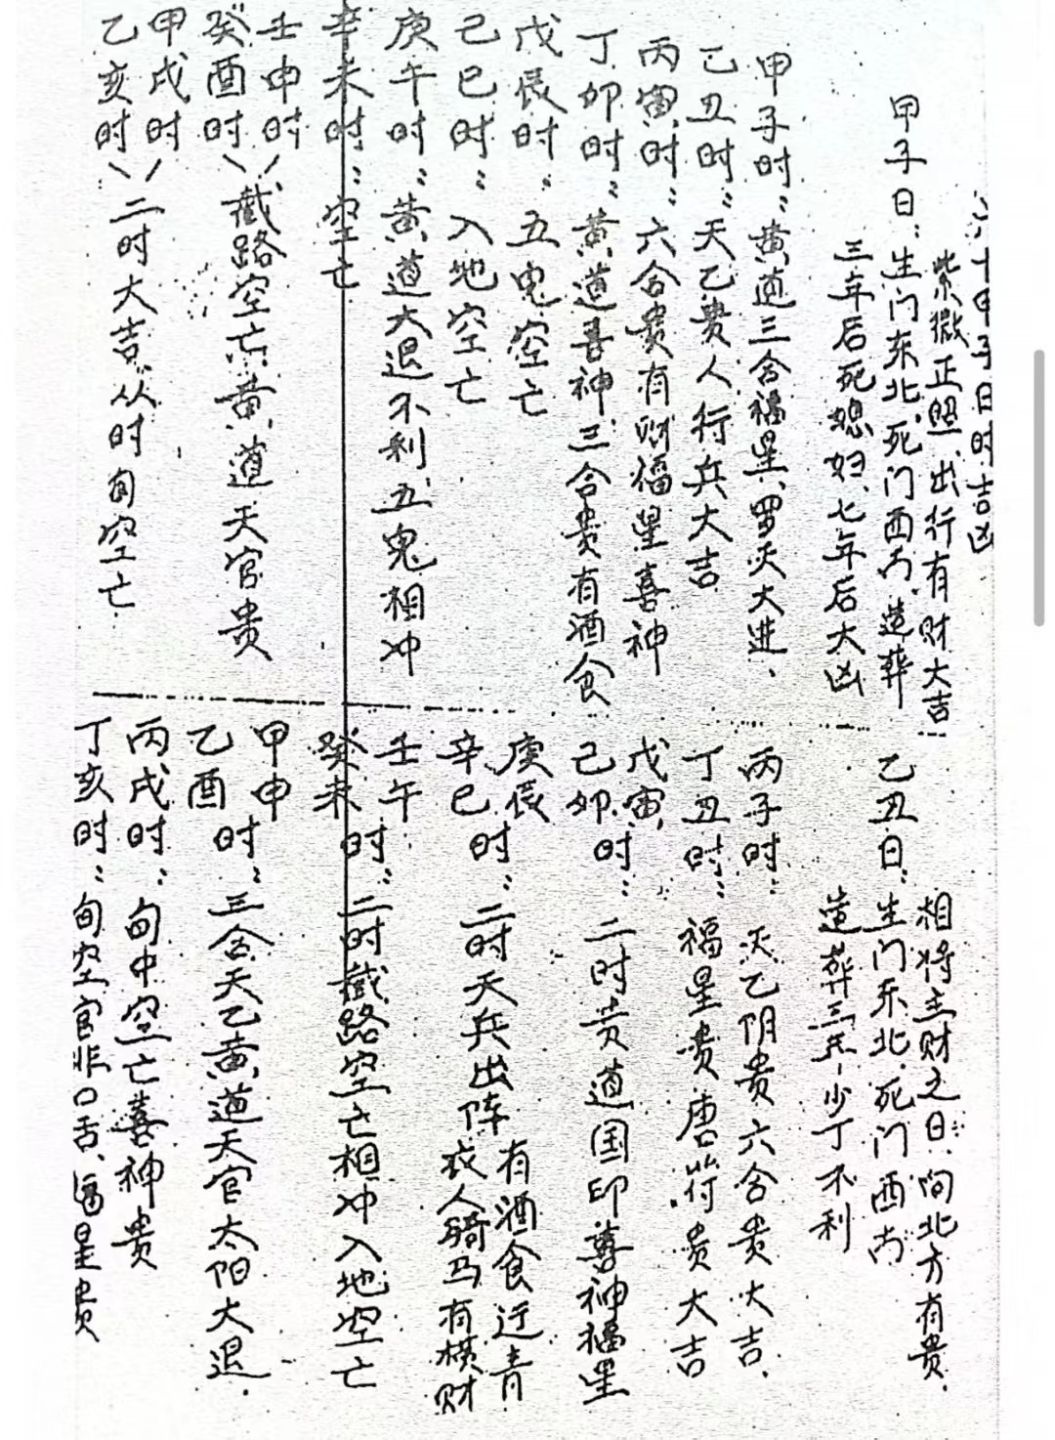 六十甲子日时吉凶
紫微正照出行有财大吉
甲子日：生门东北、死门西南、造葬
三年后死媳妇、七年后大凶
甲子时：黄道三合福星、罗天大进、
乙丑时：天乙贵人行兵大吉
丙寅时：六合贵有财福星喜神
丁卯时：黄道喜神三合贵有酒食
戊辰时：五鬼空亡
己巳时：入地空亡
庚午时：黄道大退不利五鬼相冲
辛未时：空亡
壬申时
癸酉时
截路空亡黄道天官贵
甲戌时
乙亥时
二时大吉从时旬空亡
相将主财之日、向北方有贵、
乙丑日：生门东北、死门西南
造葬三年少丁不利
丙子时：天乙阴贵六合贵大吉、
丁丑时：福星贵唐符贵大吉
戊寅
己卯
时：二时黄道国印喜神福星
庚辰
辛巳
时：二时天兵出阵
有酒食迁青
衣人骑马有横财
壬午
癸未
时：二时截路空亡相冲入地空亡
甲申
乙酉
时：三合天乙黄道天官太阳大退、
丙戌时：旬中空亡喜神贵
丁亥时：旬空官非口舌、福星贵